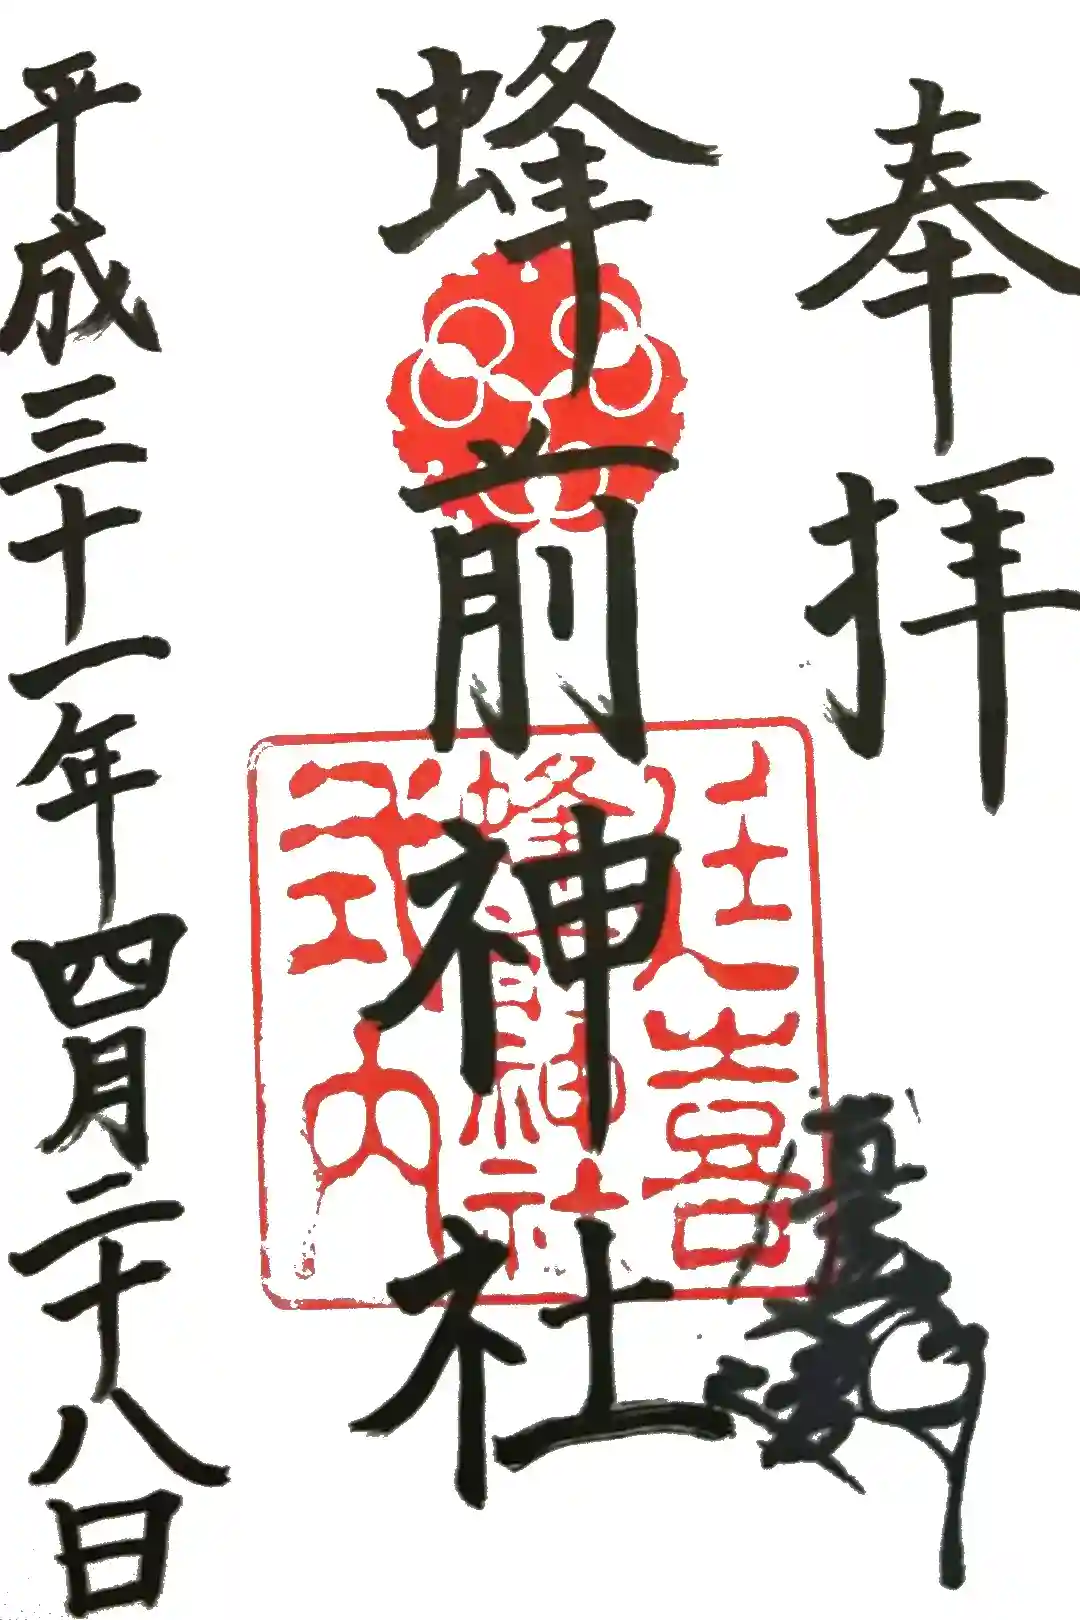 奉拝
延喜
蜂前神社
式内
蜂前神社
平成三十一年四月二十八日